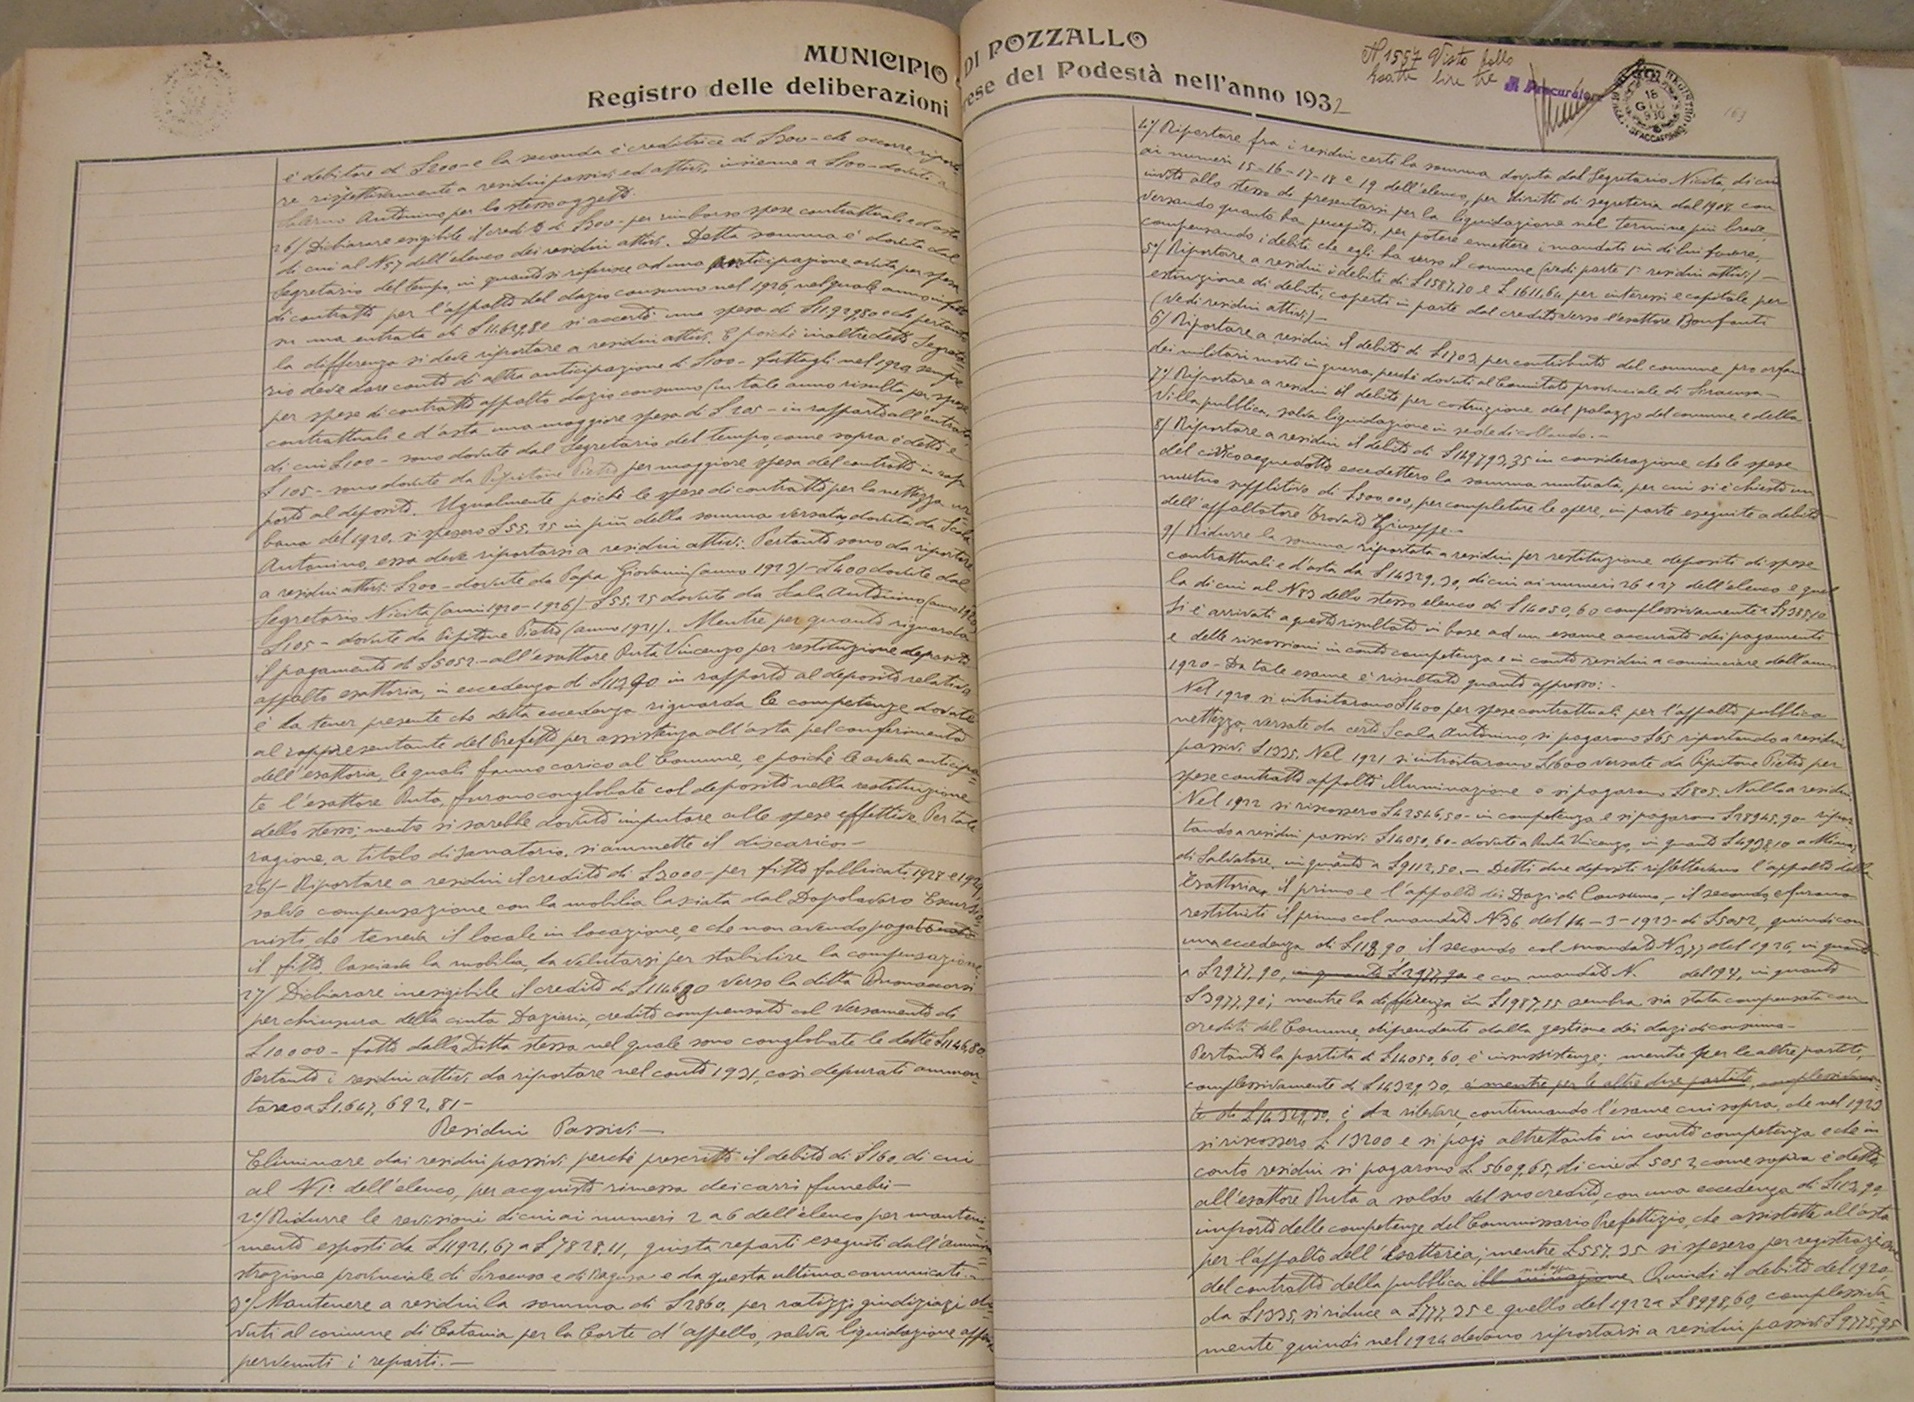 MUNICIPIO DI POZZALLO
Registro delle deliberazioni prese del Podestà nell'anno 1932
N. 1557 Visto
lire tre
Il Procuratore
è debitore di £200 - e la seconda è creditrice di £300 - che occorre
re rispettivamente a residui passivi ed attivi, insieme a £100 - dovute a
Salerno Antonino per lo stesso oggetto.
26/ Dichiarare esigibile il credito di £300 - per rimborso spese contrattuali e d'asta
di cui al N57 dell'elenco dei residui attivi. Detta somma è dovuta dal
Segretario del tempo, in quanto si riferisce ad una anticipazione avuta per spese
di contratto per l'appalto del dazio consumo nel 1926, nel quale anno
su una entrata di £11.629,80 si accertò una spesa di £11.929,80 e che pertanto
la differenza si deve riportare a residui attivi. E poichè inoltre detto Segreta=
rio deve dare conto di altra anticipazione di £100 - fattagli nel 1920 sempre
per spese di contratto appalto dazio consumo (in tale anno risulta per spese
contrattuali e d'asta una maggiore spesa di £205 - in rapporto all'entrata,
di cui £100 - sono dovute dal Segretario del tempo come sopra è detto e
£105 - sono dovute da Pipitone Pietro per maggiore spesa del contratto in rap
porto al deposito. Ugualmente poichè le spese di contratto per la nettezza ur
bana del 1920, si spesero £55,25 in più della somma versata, dovuta da Scala
Antonino, essa deve riportarsi a residui attivi. Pertanto sono da riportare
a residui attivi: £200 - dovute da Papa Giovanni (anno 1923) - £400 dovute dal
Segretario Nicita (anni 1920-1926) - £55,25 dovute da Scala Antonino (anno 1920)
£105 - dovute da Pipitone Pietro (anno 1921). Mentre per quanto riguarda
il pagamento di £5052 - all'esattore Ruta Vincenzo per restituzione deposito
appalto esattoria, in eccedenza di £113,90 in rapporto al deposito relativo
è da tener presente che detta eccedenza riguarda le competenze dovute
al rappresentante del Prefetto per assistenza all'asta pel conferimento
dell'esattoria, le quali fanno carico al Comune, e poichè le aveva anticipa=
te l'esattore Ruta, furono conglobate col deposito nella restituzione
dello stesso; mentre si sarebbe dovuto imputare alle spese effettive. Per tale
ragione, a titolo di sanatoria, si ammette il discarico. -
26/- Riportare a residui il credito di £3000 - per fitto fabbricati 1928 e 1929,
salvo compensazione con la mobilia lasciata dal Dopolavoro Escursio
nisti, che teneva il locale in locazione, e che non avendo pagato
il fitto, lasciava la mobilia, da valutarsi per stabilire la compensazione.
27/ Dichiarare inesigibile il credito di £1146,80 verso la ditta
per chiusura della cinta Daziaria, credito compensato col versamento di
£10000 - fatto dalla Ditta stessa nel quale sono conglobate le dette £1146,80
Pertanto i residui attivi da riportare nel conto 1931, così depurati ammon=
tano a £1.647.692,81 -
Residui Passivi. -
Eliminare dai residui passivi, perchè prescritto il debito di £160, di cui
al N1° dell'elenco, per acquisto rimessa dei carri funebri -
2°/ Ridurre le revisioni di cui ai numeri 2 a 6 dell'elenco per manteni=
mento esposti da £11921,67 a £7828,11, giusta reparti eseguiti dall'ammini
strazione provinciale di Siracusa e di Ragusa e da questa ultima comunicati. -
3°/ Mantenere a residui la somma di £2860, per ratizzi giudiziari do
vuti al comune di Catania per la Corte d'appello, salva liquidazione appena
pervenuti i reparti. -
4°/ Riportare fra i residui certi la somma dovuta dal Segretario Nicita, di cui
ai numeri 15-16-17-18 e 19 dell'elenco, per diritti di segreteria dal 1908 con
invito allo stesso di presentarsi per la liquidazione nel termine più breve,
versando quanto ha percepito, per potere emettere i mandati in di lui favore,
compensando i debiti che egli ha verso il comune (vedi parte 1ª residui attivi) -
5°/ Riportare a residui i debiti di £1587,70 e £1611,64 per interessi e capitale per
estinzione di debiti, coperti in parte dal credito verso l'esattore Bonfanti
(vedi residui attivi) -
6°/ Riportare a residui il debito di £1703 per contributo del comune pro orfani
dei militari morti in guerra, perchè dovuti al Comitato provinciale di Siracusa -
7°/ Riportare a residui il debito per costruzione del palazzo del comune e della
Villa pubblica, salva liquidazione in sede di collaudo. -
8/ Riportare a residui il debito di £149793,35 in considerazione che le spese
del civico acquedotto eccedettero la somma mutuata, per cui si è chiesto un
mutuo suppletivo di £300.000, per completare le opere, in parte eseguite a debito
dell'appaltatore Trovato Giuseppe -
9/ Ridurre la somma riportata a residui per restituzione depositi di spese
contrattuali e d'asta da £14329,30, di cui ai numeri 26 e 27 dell'elenco e quel
la di cui al N83 dello stesso elenco di £14050,60 complessivamente a
Si è arrivati a questo risultato in base ad un esame accurato dei pagamenti
e delle riscossioni in conto competenza e in conto residui a cominciare dall'anno
1920 - Da tale esame è risultato quanto appresso: -
Nel 1920 si introitarono £1400 per spese contrattuali per l'appalto pubblica
nettezza, versate da certo Scala Antonino, si pagarono £65 riportando a residui
passivi £1335. Nel 1921 si introitarono £1600 versate da Pipitone Pietro per
spese contratto appalto illuminazione e si pagarono £1805. Nulla a residui.
Nel 1922 si riscossero £42546,50 - in competenza e si pagarono £28945,90 - ripor
tando a residui passivi £14050,60 - dovute a Ruta Vincenzo, in quanto £4938,10 a
di Salvatore, in quanto a £9112,50. - Detti due depositi riflettevano l'appalto della
Esattoria, il primo e l'appalto dei Dazi di Consumo, - il secondo, e furono
restituiti il primo col mandato N36 del 14-3-1923 - di £5052, quindi con
una eccedenza di £113,90 il secondo col mandato N377 del 1926, in quanto
a £2977,90, in quanto £2977,90 e con mandato N. del 1931, in quanto
£3977,90; mentre la differenza in £1987,55 sembra sia stata compensata con
crediti del Comune, dipendente dalla gestione dei dazi di consumo -
Pertanto la partita di £14050,60 è insussistenza: mentre per le altre partite,
complessivamente di £14329,30, e mentre per le altre due partite, complessivamen=
te di £14329,30, è da rilevare, continuando l'esame cui sopra, che nel 1923
si riscossero £13200 e si pagò altrettanto in conto competenza e che in
conto residui si pagarono £5609,65, di cui £5052 come sopra è detto,
all'esattore Ruta a saldo del suo credito, con una eccedenza di £113,90,
importo delle competenze del Commissario Prefettizio, che assistette all'asta
per l'appalto dell'Esattoria; mentre £557,35 si spesero per registrazione
del contratto della pubblica illuminazione nettezza. Quindi il debito del 1920,
da £1335, si riduce a £777,35 e quello del 1922 a £8998,60, complessiva
mente quindi nel 1924 devono riportarsi a residui passivi £9775,95